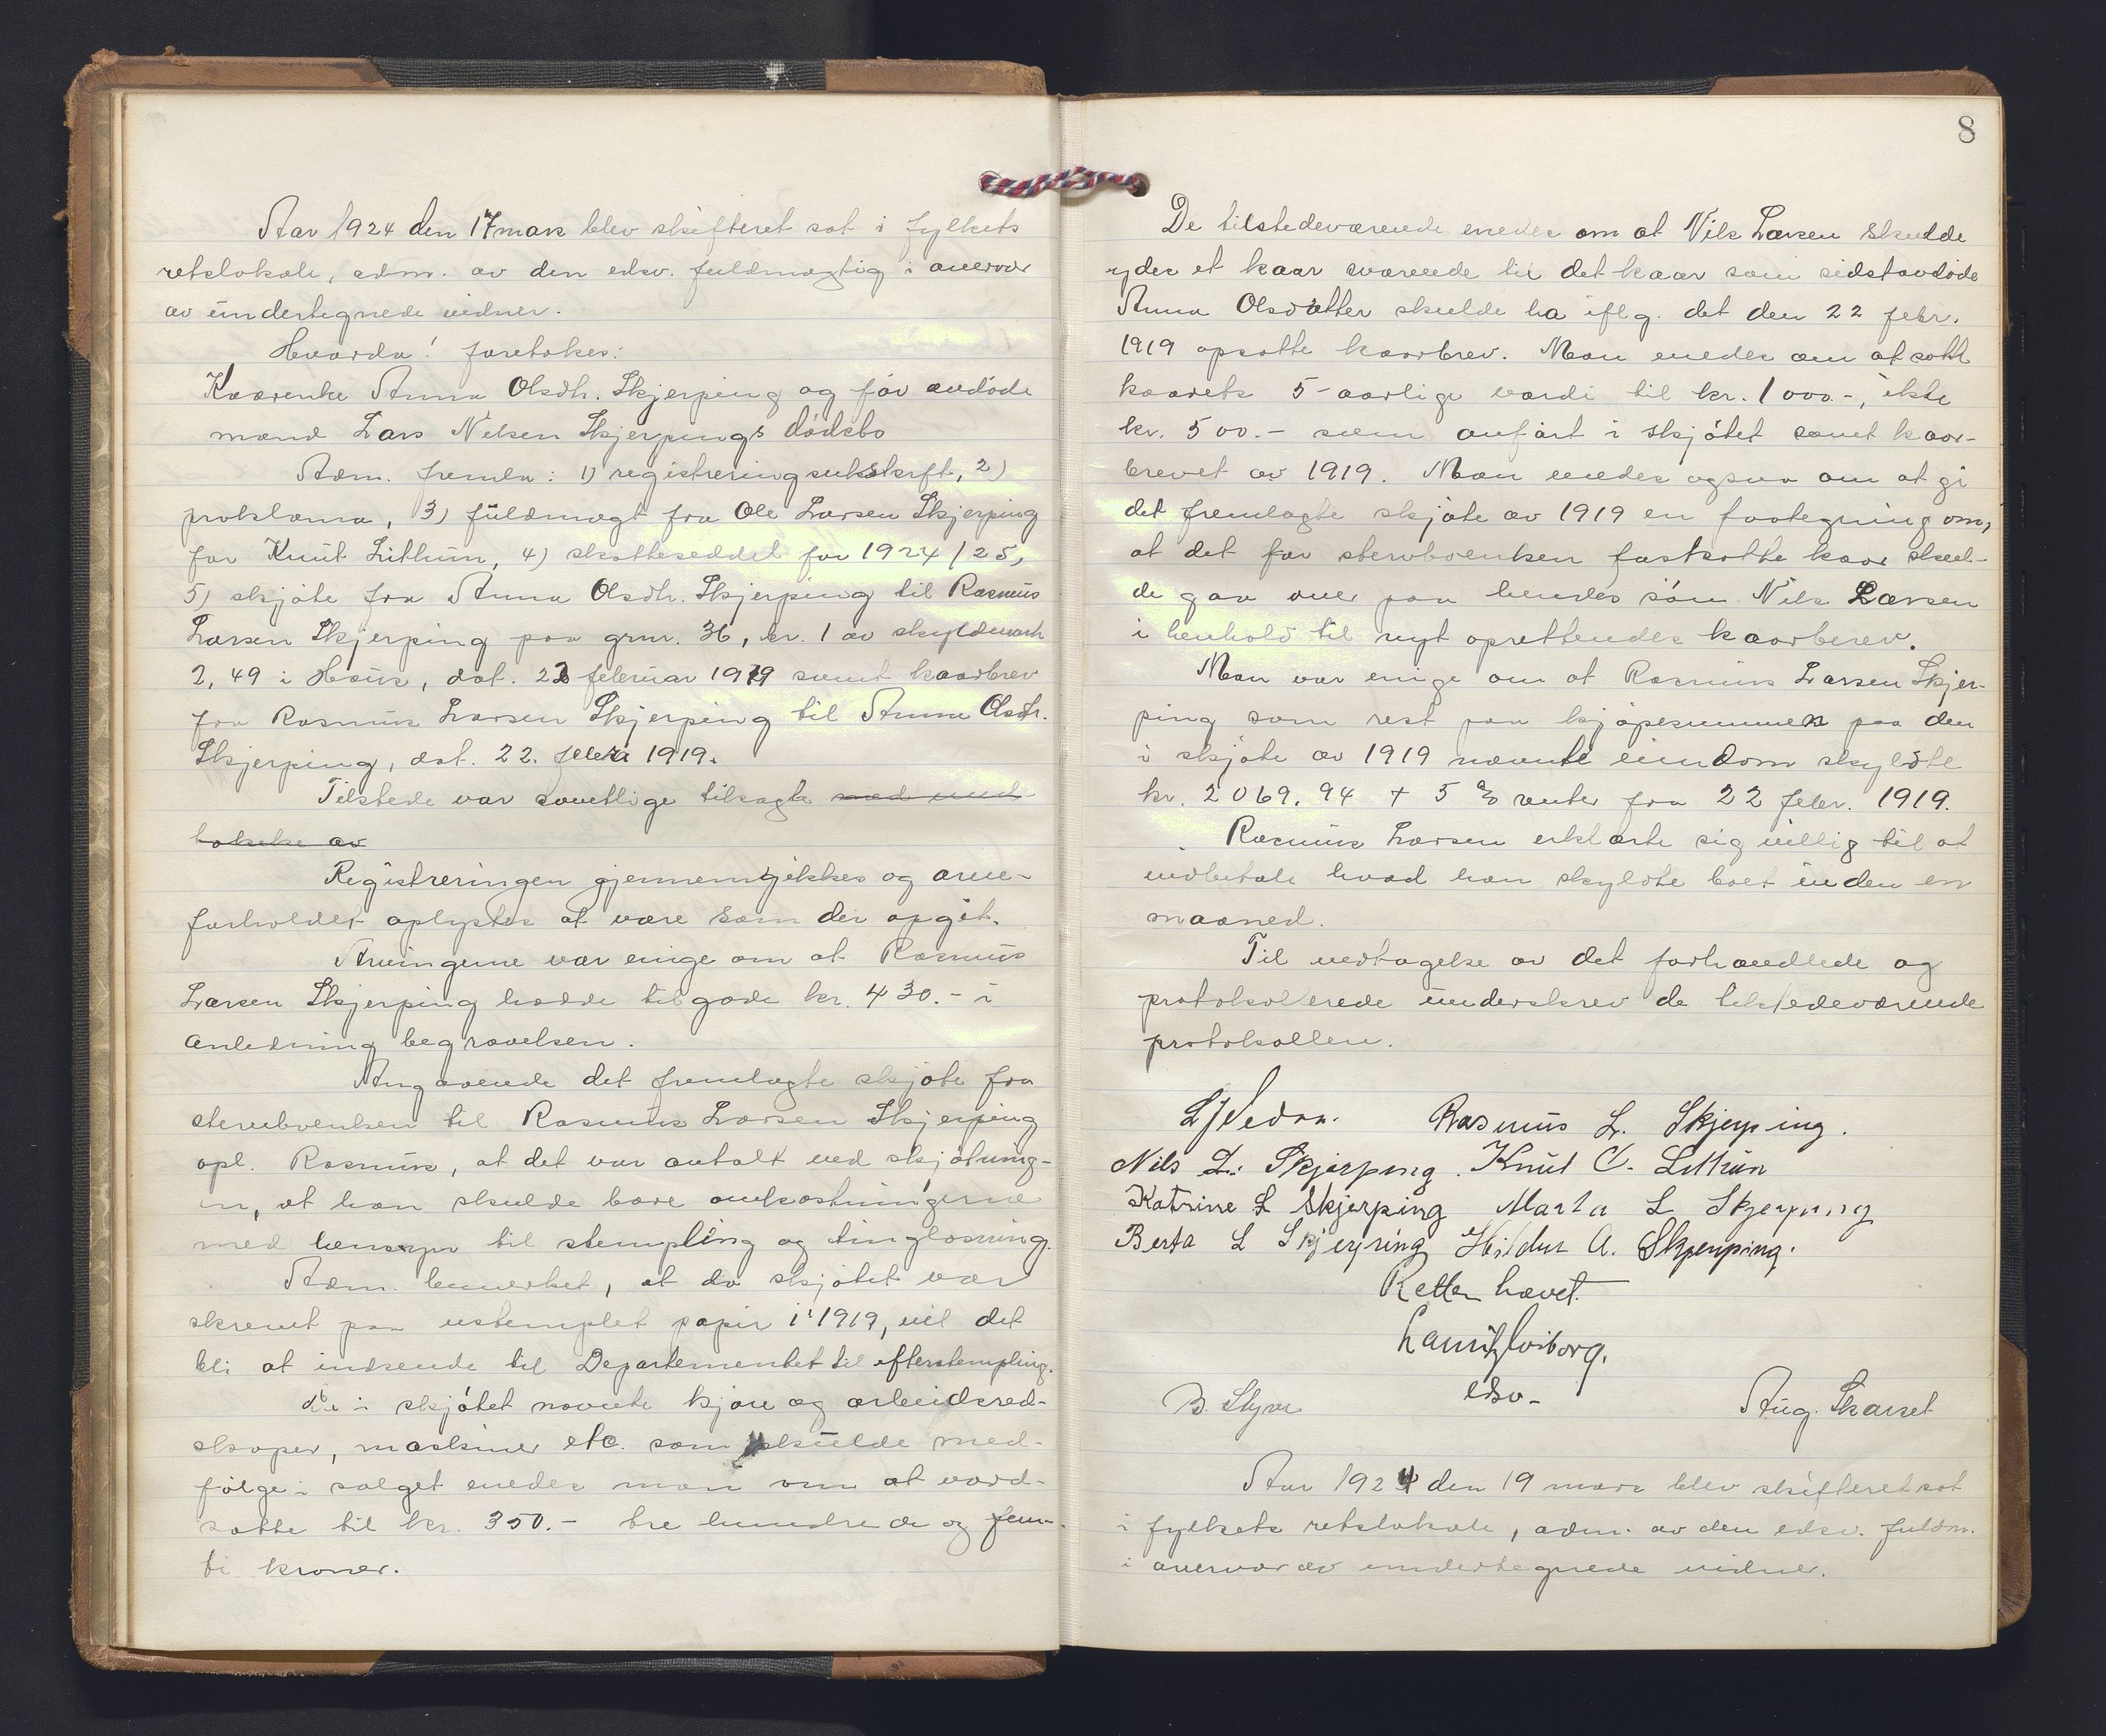 Aar 1924 den 17 mars blev skifteret sat i fylkets
retslokale, adm. av den edsv. fuldmægtig i overvær
av undertegnede vidner.
Hvorda! foretokes:
Kaarenke Anna Olsdtr. Skjerping og før avdøde
mand Lars Nilsen Skjerpings dødsbo
Adm. fremla: 1) registreringsutskrift, 2)
proklama, 3) fuldmagt fra Ole Larsen Skjerping
for Knut Littun, 4) skatteseddel for 1924/25,
5) skjøte fra Anna Olsdtr. Skjerping til Rasmus
Larsen Skjerping paa grnr. 36, br. 1 av skyldmark
2,49 i Haus, dat. 22 februar 1919 samt kaarbrev
fra Rasmus Larsen Skjerping til Anna Olsdtr.
Skjerping, dat. 22. febru 1919.
Tilstede var samtlige tilsagte med und-
takelse av
Registreringen gjennemgikkes og arve-
forholdet oplystes at være som der opgit.
Arvingerne var enige om at Rasmus
Larsen Skjerping hadde tilgode kr. 430.- i
anledning begravelsen.
Angaaende det fremlagte skjøte fra
stervboenken til Rasmus Larsen Skjerping
opl. Rasmus, at det var avtalt ved skjøtning-
en, at han skulde bære omkostningerne
med hensyn til stempling og tinglæsning.
Adm. bemerket, at da skjøtet var
skrevet paa ustemplet papir i 1919, vil det
bli at indsende til Departementet til efterstempling.
De i skjøtet nævnte kjøre og arbeidsred-
skaper, maskiner etc. som skulde med-
følge i salget enedes man om at værd-
sætte til kr. 350.- tre hundrede og fem-
ti kroner.
8
De tilstedeværende enedes om at Nils Larsen skulde
yde et kaar svarende til det kaar som sidstavdøde
Anna Olsdatter skulde ha iflg. det den 22 febr.
1919 opsatte kaarbrev. Man enedes om at sætte
kaarets 5-aarlige værdi til kr. 1000.-, ikke
kr. 500.- som anført i skjøtet samt kaar-
brevet av 1919. Man enedes ogsaa om at gi
det fremlagte skjøte av 1919 en paategning om,
at det for stervboenken fastsatte kaar skul-
de gaa over paa hendes søn Nils Larsen
i henhold til nyt oprettendes kaarbrev.
Man var enige om at Rasmus Larsen Skjer-
ping som rest paa kjøpesummen paa den
i skjøte av 1919 nævnte eiendom skyldte
kr. 2069.94 + 5 % renter fra 22 febr. 1919.
Rasmus Larsen erklærte sig villig til at
indbetale hvad han skyldte boet inden en
maaned.
Til vedtagelse av det forhandlede og
protokollerede underskrev de tilstedeværende
protokollen.
Rasmus L. Skjerping.
Nils L. Skjerping. Knut O. Littun
Katrine L Skjerping Marta L Skjerping
Berta L Skjerping Hildur A. Skjerping.
Retten hævet.
Lauritz Voiborg.
edsv-
B. Styve Aug. Skarset
Aar 1924 den 19 mars blev skifteret sat
i fylkets retslokale, adm. av den edsv. fuldm.
i overvær av undertegnede vidner.